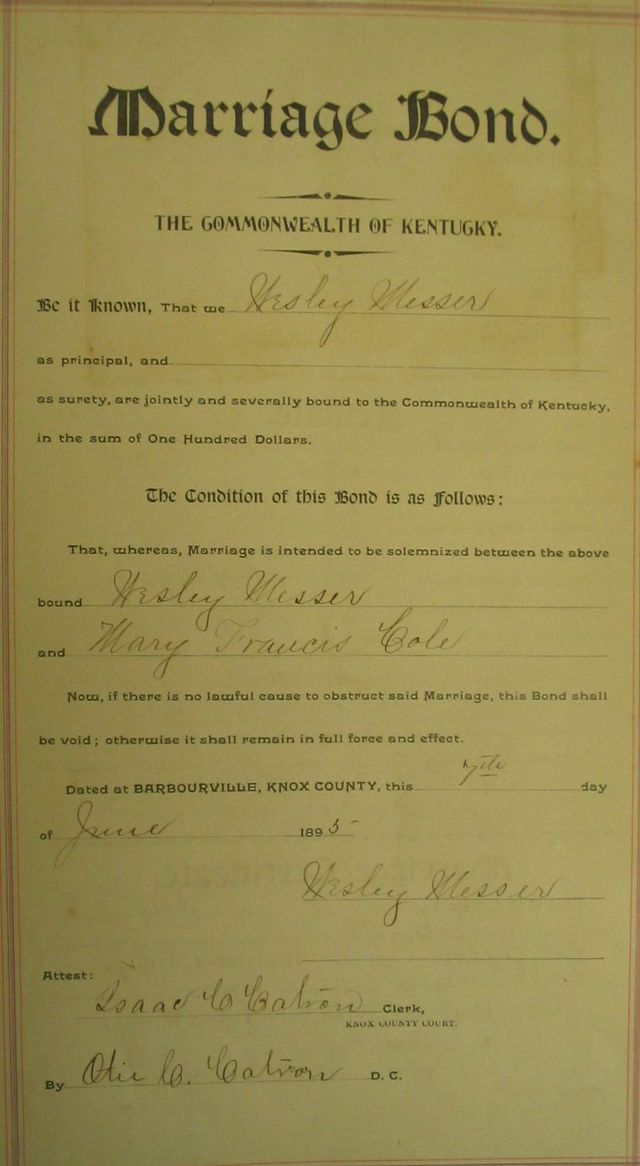 Marriage Bond.
THE COMMONWEALTH OF KENTUCKY.
Be it Known, That we Wesley Messer
as principal, and
as surety, are jointly and severally bound to the Commonwealth of Kentucky,
in the sum of One Hundred Dollars.
The Condition of this Bond is as Follows:
That, whereas, Marriage is intended to be solemnized between the above
bound Wesley Messer
and Mary Francis Cole
Now, if there is no lawful cause to obstruct said Marriage, this Bond shall
be void; otherwise it shall remain in full force and effect.
Dated at BARBOURVILLE, KNOX COUNTY, this 7th day
of June 1895
Wesley Messer
Attest:
Isaac C Catron Clerk,
KNOX COUNTY COURT.
By C. Catron D. C.